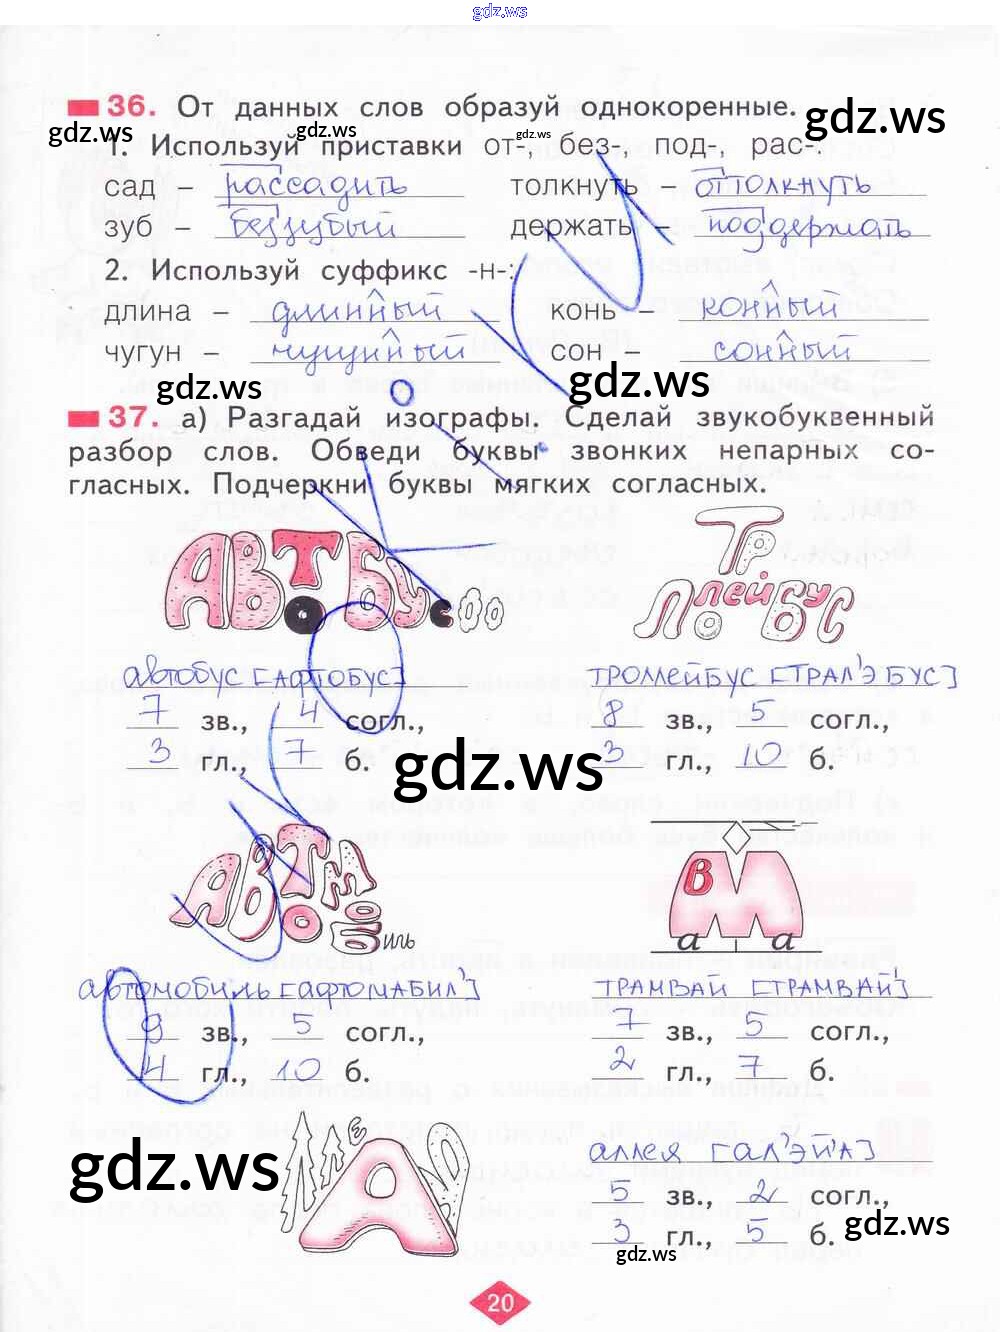 gdz.ws
36. От данных слов образуй однокоренные.
gdz.ws gdz.ws gdz.ws gdz.ws
1. Используй приставки от-, без-, под-, рас-.
сад – рассадить толкнуть – оттолкнуть
зуб – беззубый держать – поддержать
2. Используй суффикс -н-:
длина – длинный конь – конный
чугун – чугунный сон – сонный
gdz.ws gdz.ws
37. а) Разгадай изографы. Сделай звукобуквенный
разбор слов. Обведи буквы звонких непарных со-
гласных. Подчеркни буквы мягких согласных.
АВТОБУС ТРОЛЛЕЙБУС
автобус [АФТОБУС] ТРОЛЛЕЙБУС [ТРАЛ'ЭБУС]
7 зв., 4 согл., 8 зв., 5 согл.,
3 гл., 7 б. 3 гл., 10 б.
gdz.ws
АВТОМОБиль Трамвaа
АВТОМОБИЛЬ [АФТОМАБИЛ'] ТРАМВАЙ [ТРАМВАЙ']
9 зв., 5 согл., 7 зв., 5 согл.,
4 гл., 10 б. 2 гл., 7 б.
gdz.ws
аллея [АЛ'ЭЙ'А]
5 зв., 2 согл.,
gdz.ws
3 гл., 5 б.
gdz.ws
20